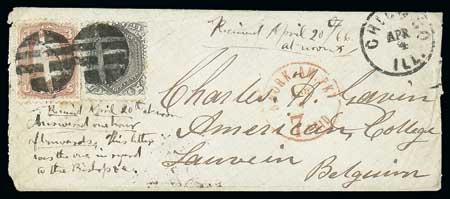 Received April 20th/66
at noon
CHICAGO
APR
4
ILL.
Charles A. Gavin
American College
Louvein
Belgium
Received April 20th at noon
Answered one hour
afterwards. This letter
was the one in regard
to the Bishop